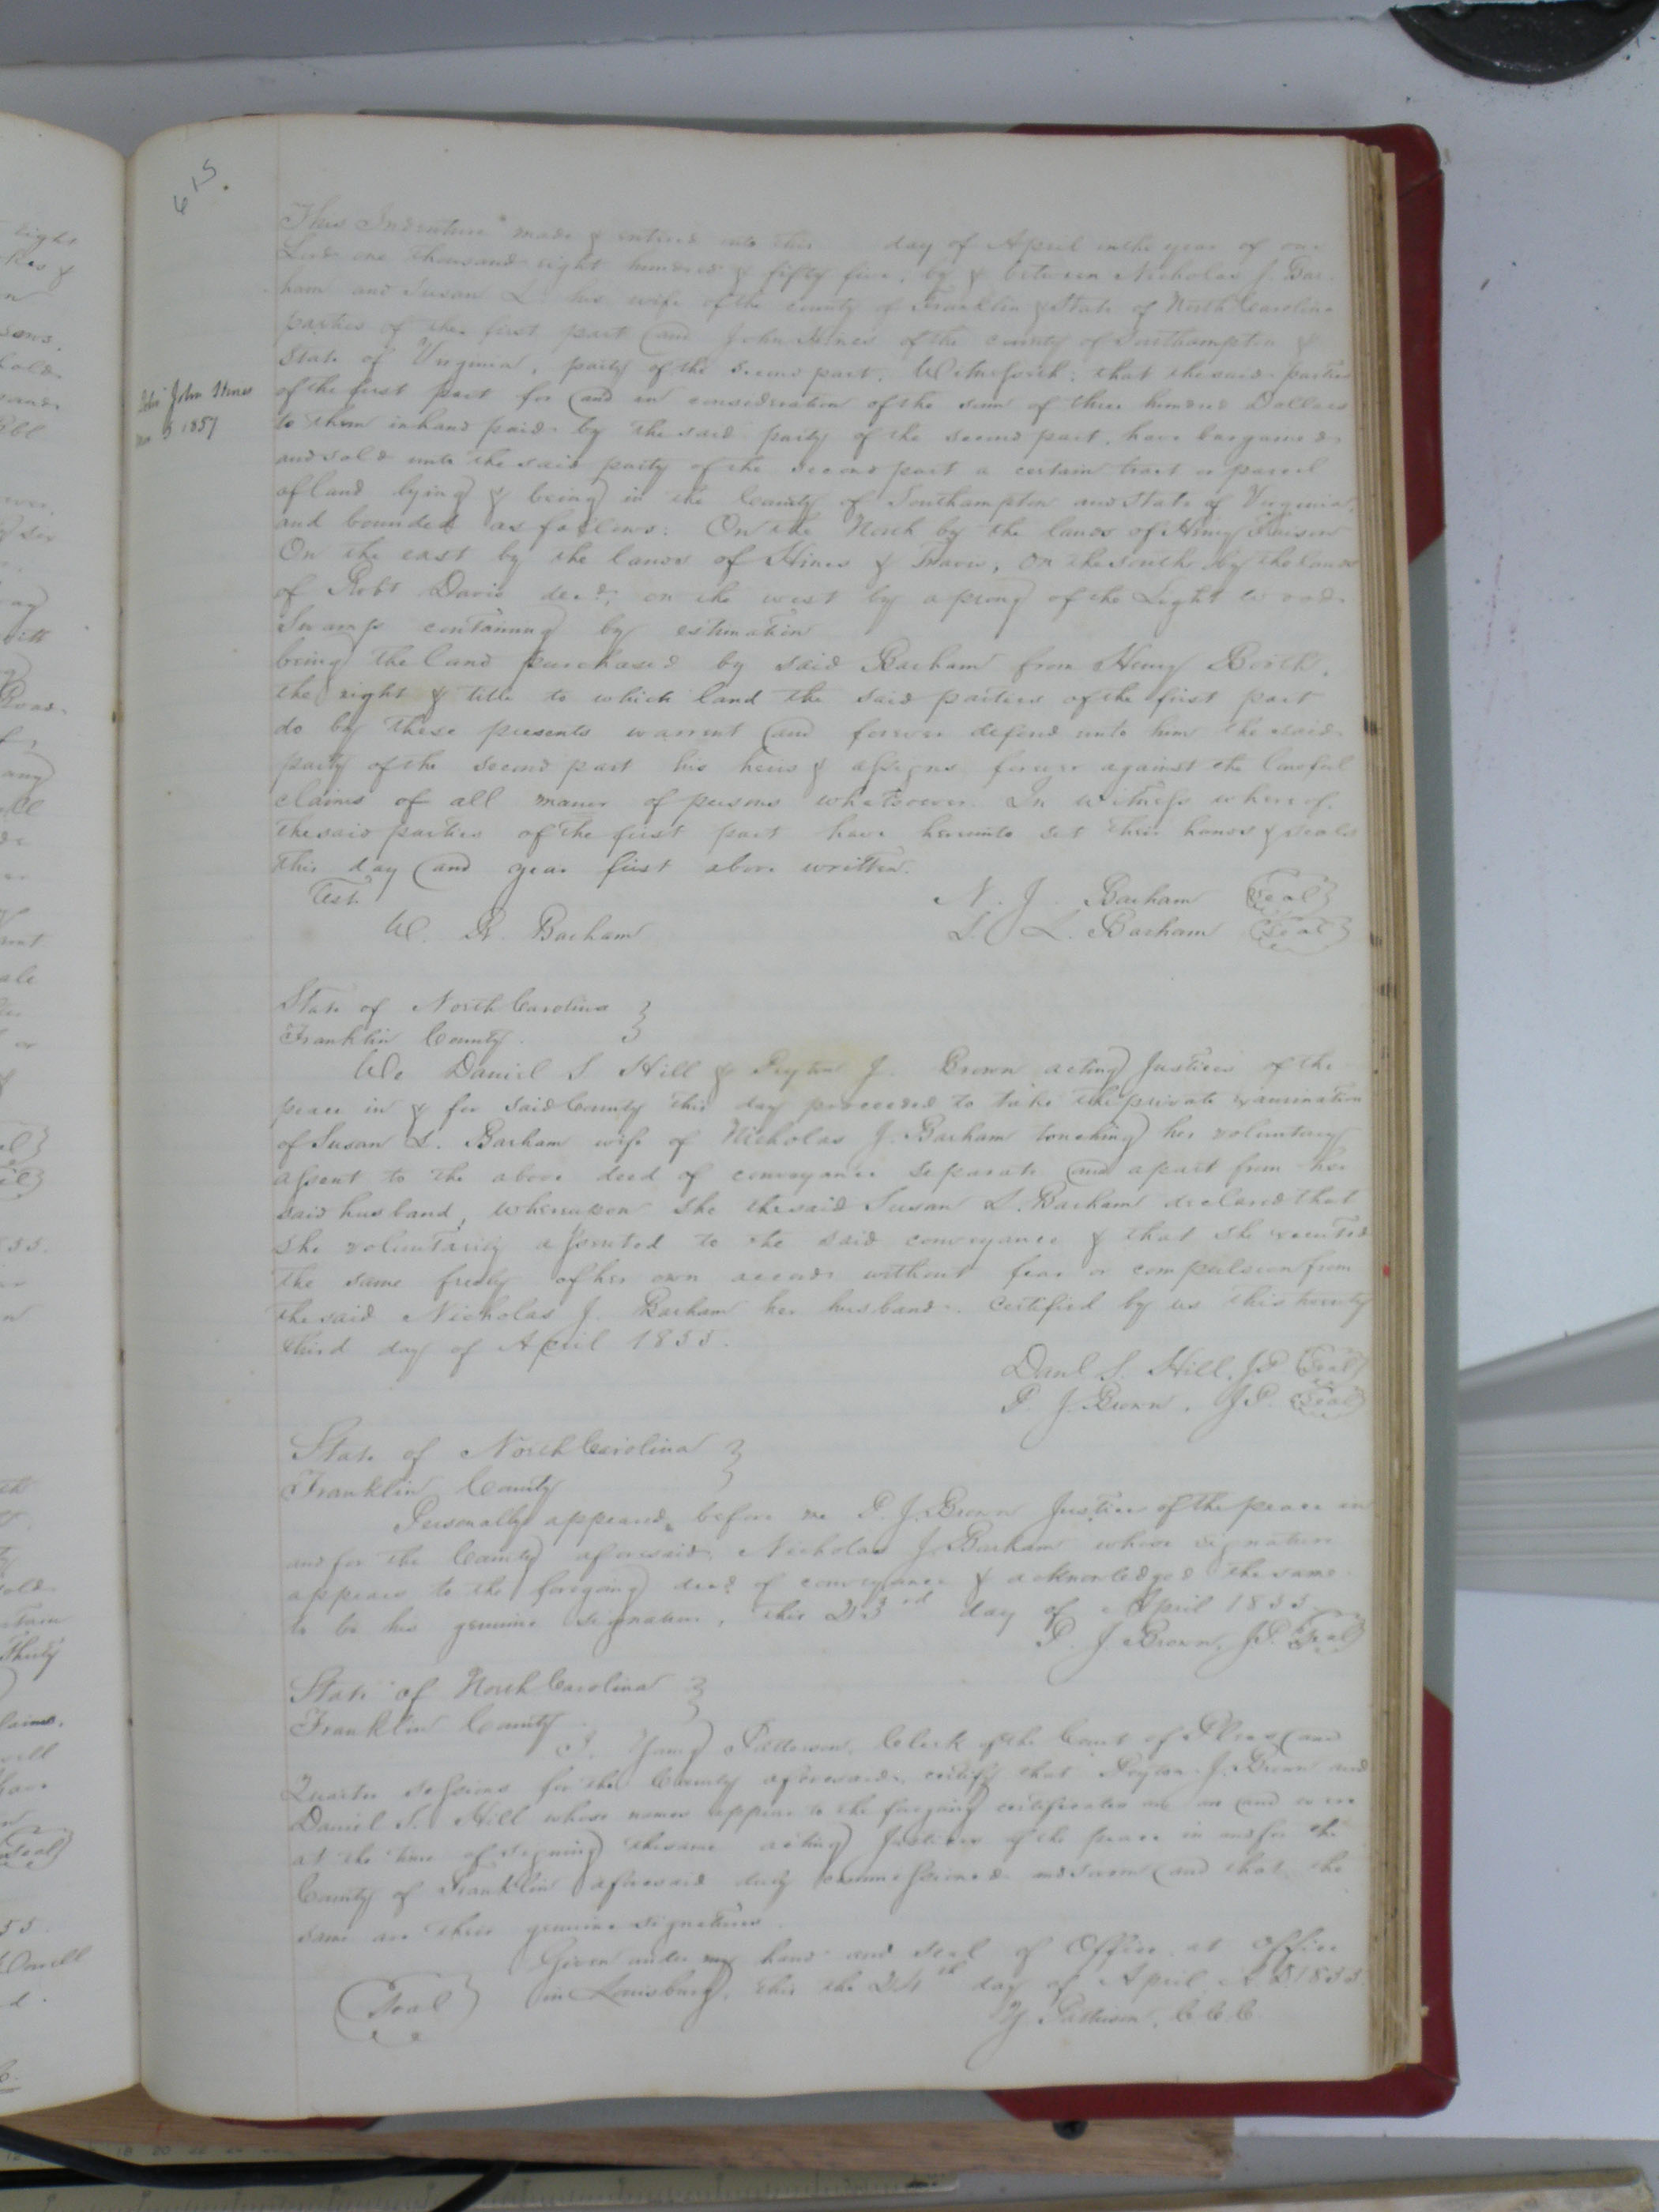 615.
This Indenture made & entered into this day of April in the year of our
Lord one thousand eight hundred & fifty five, by & between Nicholas J. Bar-
ham and Susan L. his wife of the county of Franklin & State of North Carolina
parties of the first part and John Hines of the county of Southampton &
State of Virginia, party of the second part, Witnesseth: that the said parties
Del^d John Hines
5 1857
of the first part for and in consideration of the sum of three hundred Dollars
to them in hand paid by the said party of the second part, have bargained
and sold unto the said party of the second part a certain tract or parcel
of land lying & being in the County of Southampton and State of Virginia
and bounded as follows: On the North by the lands of Henry Faison
On the east by the lands of Hines & Travis, on the south by the lands
of Robt Davis dec^d, on the west by a prong of the Light wood
Swamp containing by estimation
being the land purchased by said Barham from Henry Booth,
the right & title to which land the said parties of the first part
do by these presents warrent and forever defend unto him the said
party of the second part his heirs & assigns forever against the lawful
claims of all maner of persons whatsoever. In witness whereof
the said parties of the first part have hereunto set their hands & seals
this day and year first above written.
Test.
N. J. Barham Seal
W. R. Barham
S. L. Barham Seal
State of North Carolina
Franklin County.
We Daniel S. Hill & Peyton J. Brown acting Justices of the
peace in & for said County this day proceeded to take the private examination
of Susan L. Barham wife of Nicholas J. Barham touching her voluntary
assent to the above deed of conveyance separate and apart from her
said husband, whereupon she the said Susan L. Barham declared that
she voluntarily assented to the said conveyance & that she executed
the same freely of her own accord without fear or compulsion from
the said Nicholas J. Barham her husband. Certified by us this twenty
third day of April 1855.
Danl S. Hill, JP Seal
P J. Brown, JP. Seal
State of North Carolina
Franklin County
Personally appeared before me P. J. Brown Justice of the peace in
and for the County aforesaid, Nicholas J. Barham whose signature
appears to the foregoing deed of conveyance & acknowledged the same
to be his genuine signature, this 23^rd day of April 1855.
P. J. Brown, JP. Seal
State of North Carolina
Franklin County.
I. Young Patterson, Clerk of the Court of Pleas and
Quarter sessions for the County aforesaid, certify that Peyton J. Brown and
Daniel S. Hill whose names appear to the foregoing certificates are and were
at the time of signing the same acting Justices of the peace in and for the
County of Franklin aforesaid duly commissioned and sworn and that the
same are their genuine signatures.
Given under my hand and seal of Office at office
Seal
in Louisburg, this the 24^th day of April A.D. 1855.
Y. Patterson, C.C.C.